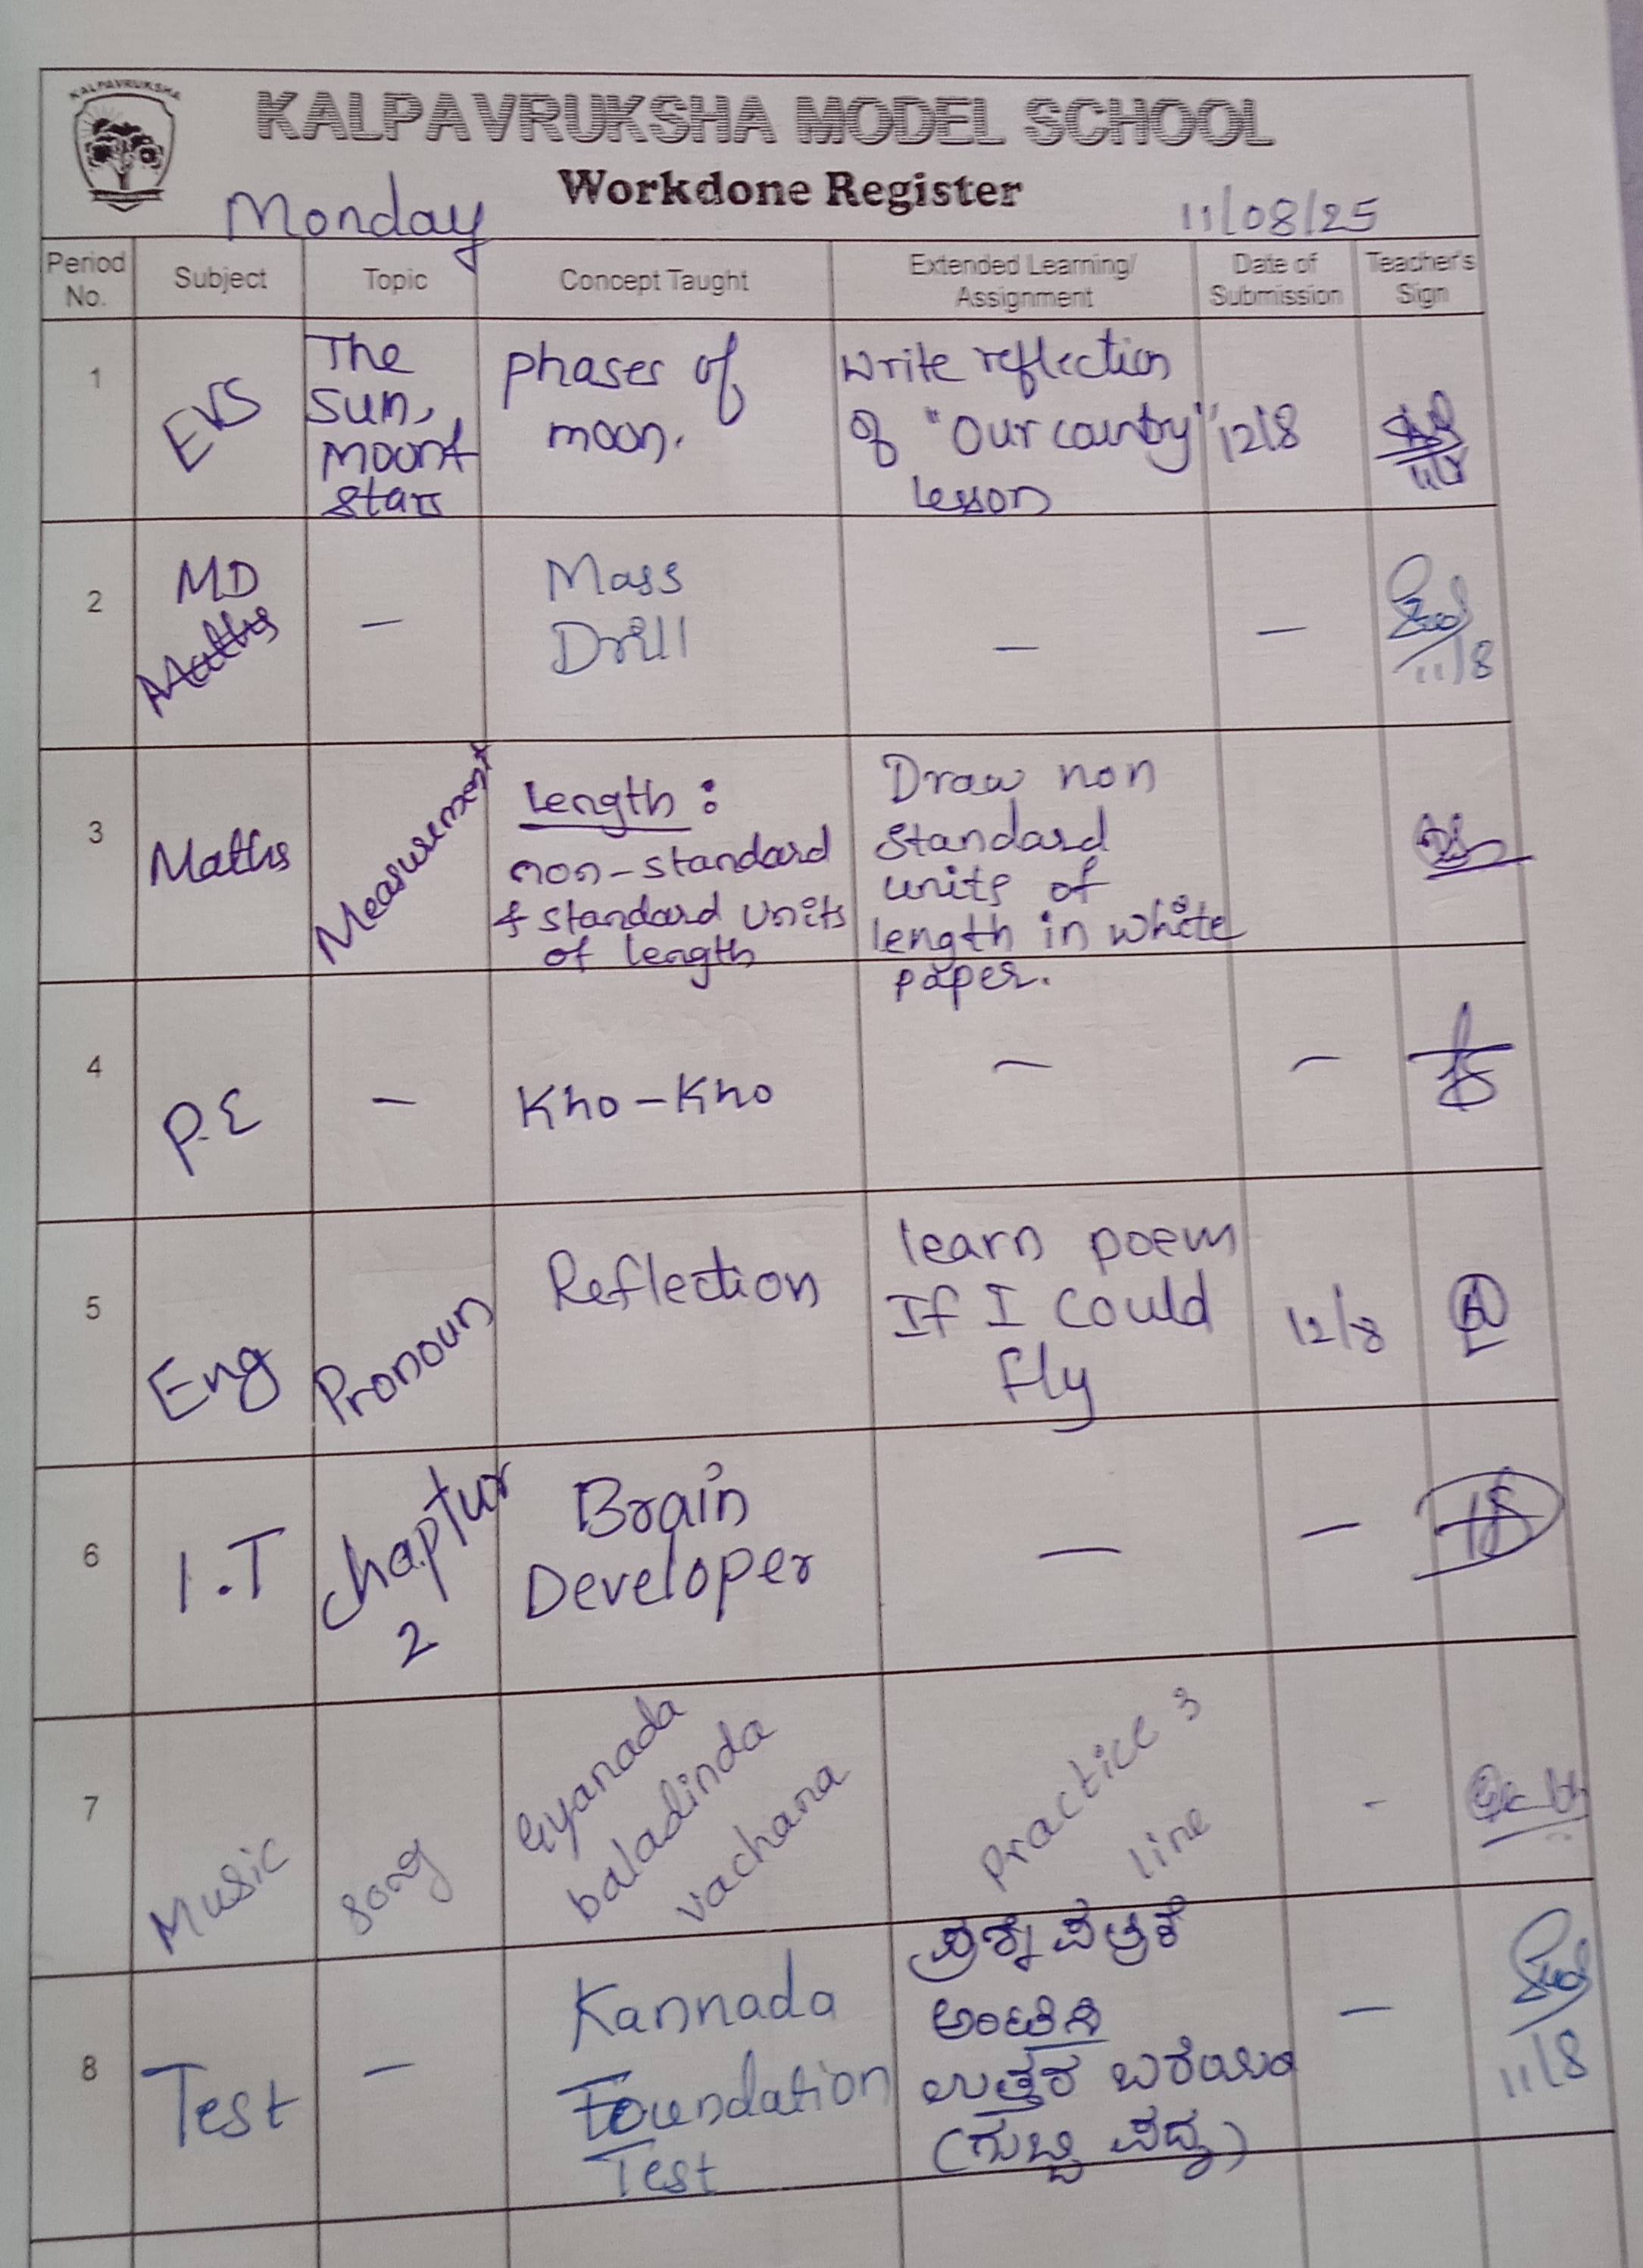 KALPAVRUKSHA
KALPAVRUKSHA MODEL SCHOOL
Workdone Register
Monday
11/08/25
Period No.
Subject
Topic
Concept Taught
Extended Learning/
Assignment
Date of
Submission
Teacher's
Sign
1
EVS
The
Sun,
moon &
stars
phases of
moon.
write reflection
of "Our country"
lesson
12/8
11/8
2
MD
Maths
-
Mass
Drill
-
-
11/8
3
Maths
Measurement
Length :
non-standard
& standard units
of length
Draw non
standard
units of
length in white
paper.
4
P.E
-
Kho-Kho
-
-
5
Eng
Pronoun
Reflection
learn poem
If I could
fly
12/8
6
I.T
Chaptur
2
Brain
Developer
-
-
7
Music
song
Gyanada
baladinda
vachana
Practice 3
line
-
8
Test
-
Kannada
Foundation
Test
ಪ್ರಶ್ನೆ ಪತ್ರಿಕೆ
ಅಂಟಿಸಿ
ಉತ್ತರ ಬರೆಯಿರಿ
(ಗುಬ್ಬಿ ಪದ್ಯ)
-
11/8